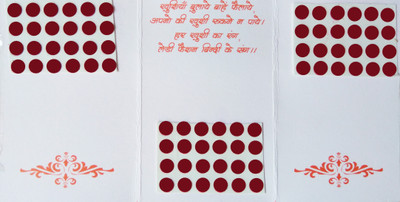 खुशियाँ बुलाये बाहे फैलाये,
अपनो की खुशी सबको न पाये।
हार खुशी का संग,
लेडी फैशन बिन्दी के संग।।